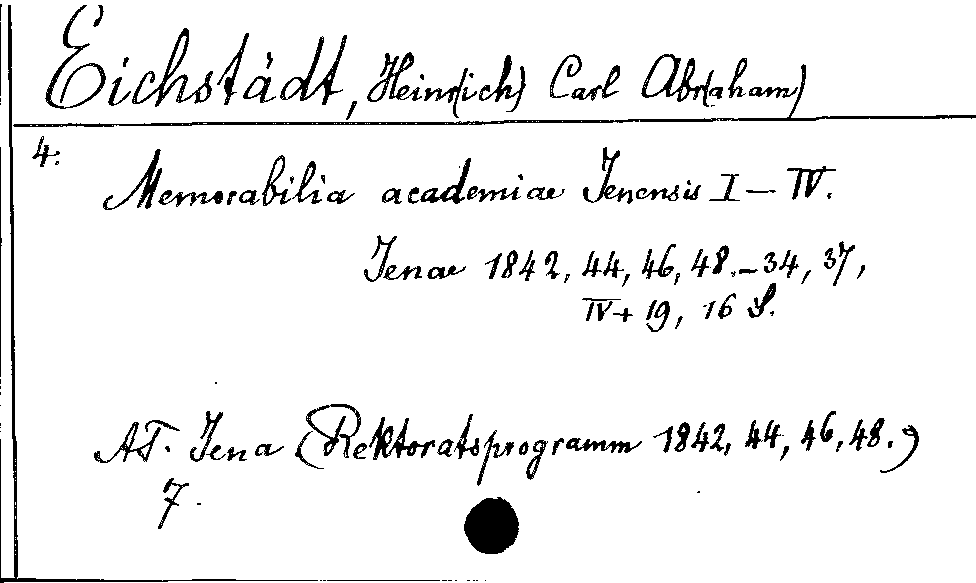 Eichstädt, Hein(rich) Carl Abr(aham)
4.
Memorabilia academiae Jenensis I – IV.
Jenae 1842, 44, 46, 48. – 34, 37,
IV + 19, 16 S.
AT. Jena (Rektoratsprogramm 1842, 44, 46, 48.)
7.